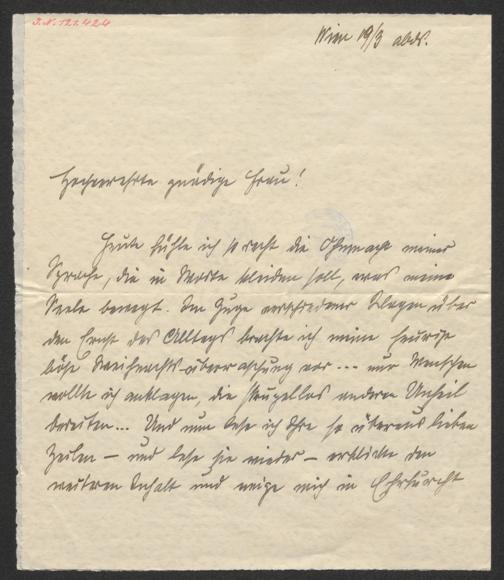 J.N. 121.424
Wien 19/3 abds.
Hochverehrte gnädige Frau!
Heute fühle ich so recht die Ohnmacht meiner
Sprache, die in Worte kleiden soll, was meine
Seele bewegt. Im Zuge verschiedener Klagen über
den Ernst des Alltags brachte ich meine heurige
böse Weihnachts-überraschung vor... nur Menschen
wollte ich anklagen, die skrupellos anderen Unheil
bereiten... Und nun lese ich Ihre so überaus lieben
Zeilen — und lese sie wieder — erblicke den
weiteren Inhalt und neige mich in Ehrfurcht